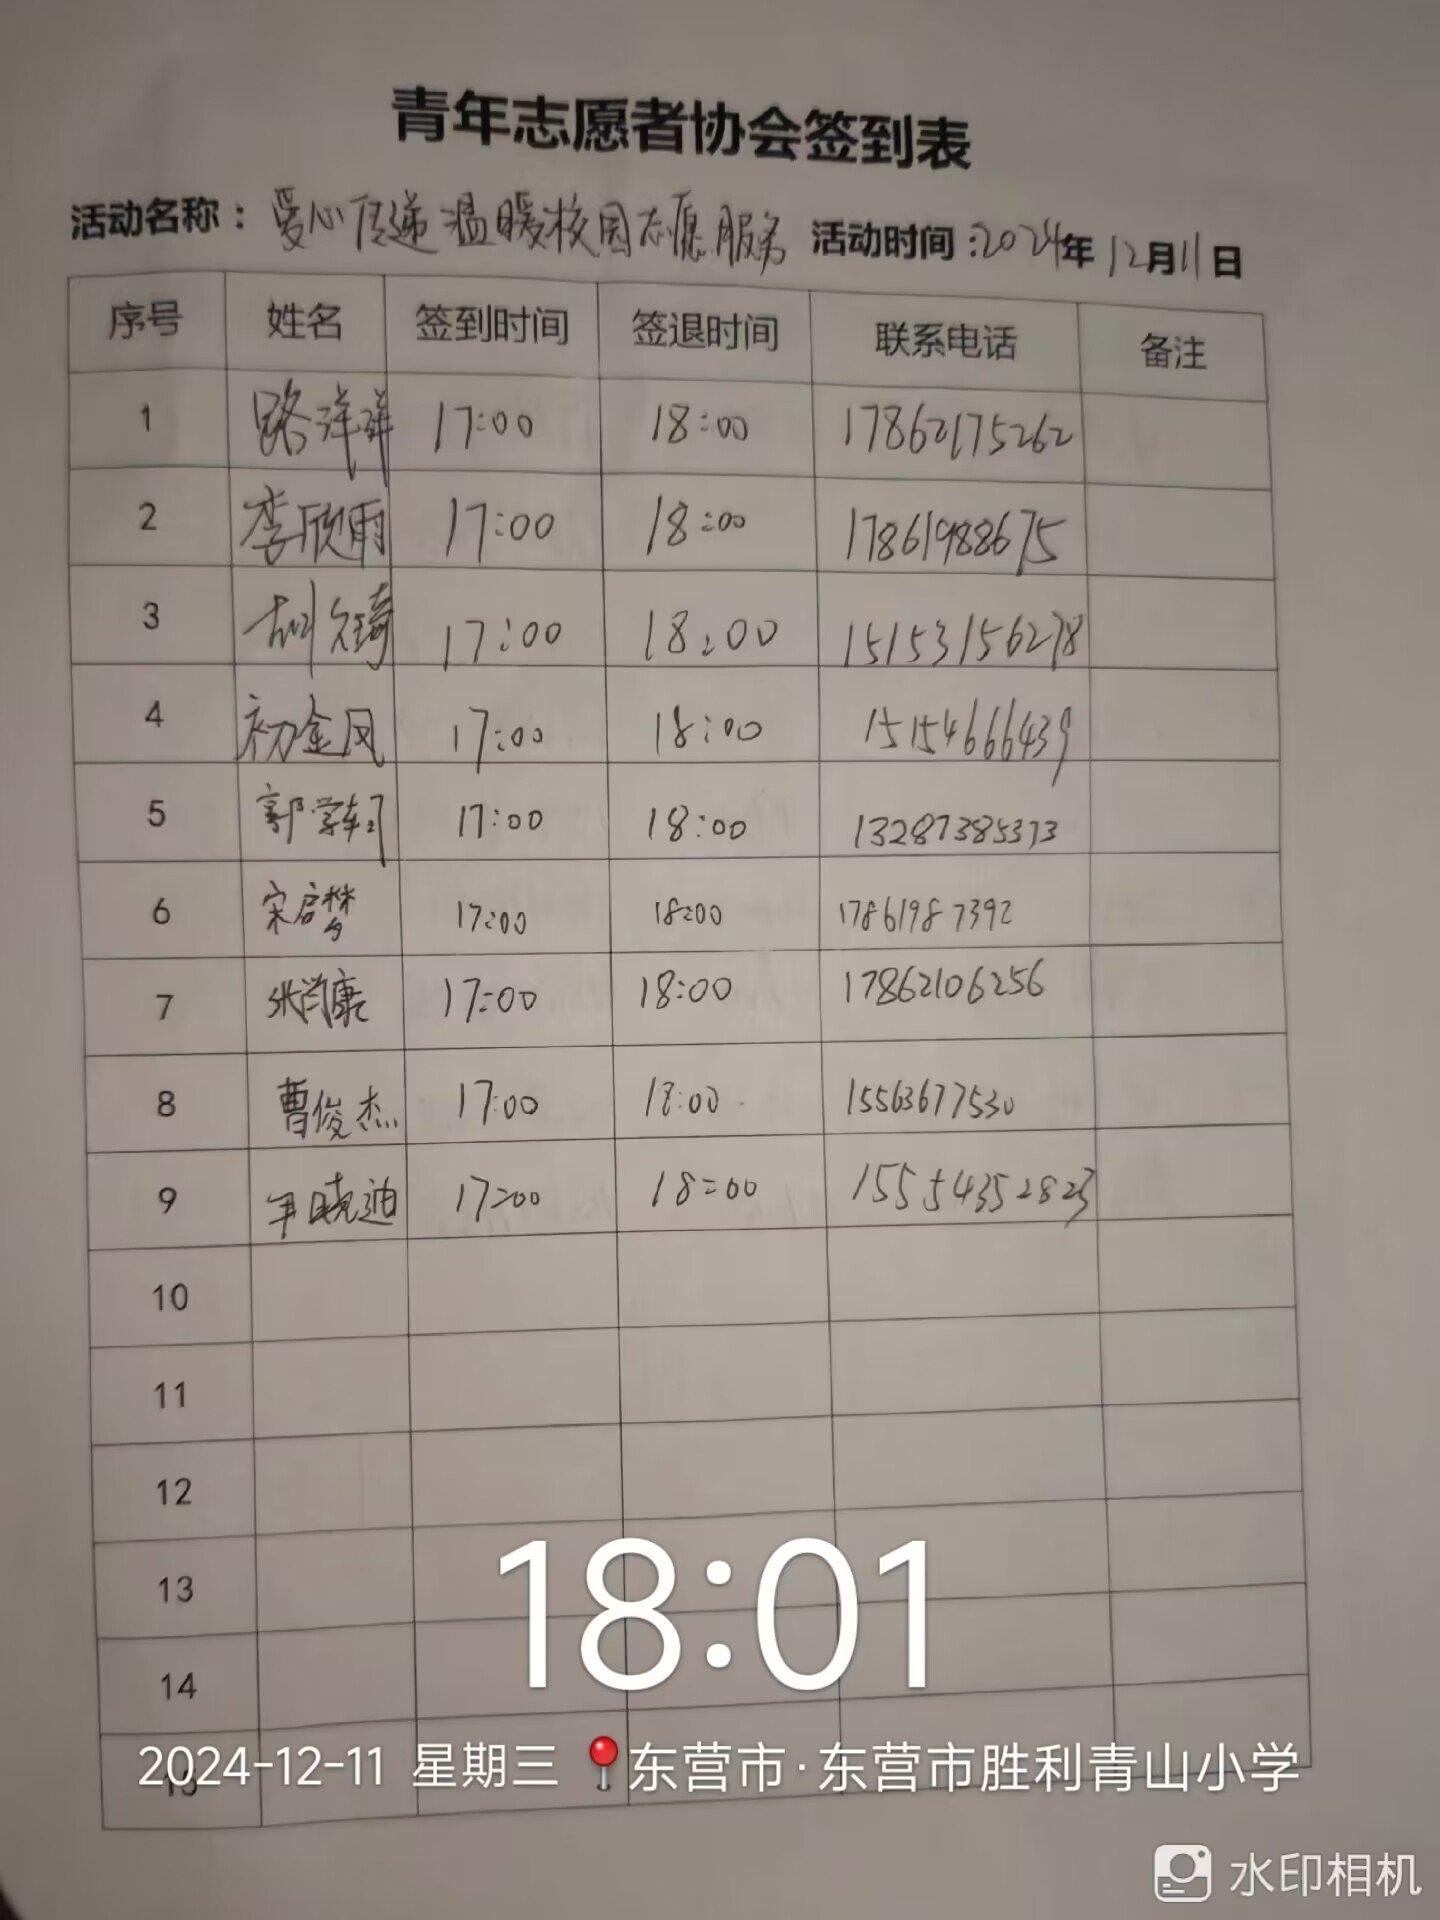 青年志愿者协会签到表
活动名称：爱心传递温暖校园志愿服务 活动时间：2024年12月11日
序号 姓名 签到时间 签退时间 联系电话 备注
1 路洋洋 17:00 18:00 17862175262
2 李欣雨 17:00 18:00 17861988675
3 17:00 18:00 15153156278
4 初金凤 17:00 18:00 15154666439
5 郭学轲 17:00 18:00 13287385373
6 宋启梦 17:00 18:00 17861987392
7 张尚康 17:00 18:00 17862106256
8 曹俊杰 17:00 18:00 15563677530
9 牟晓迪 17:00 18:00 15554352823
10
11
12
13
14
15
18:01
2024-12-11 星期三 东营市·东营市胜利青山小学
水印相机